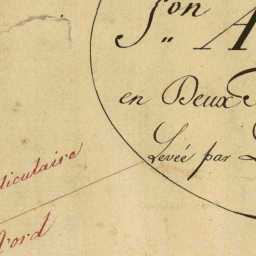 Son A
en Deux
Levée par
diculaire
Nord